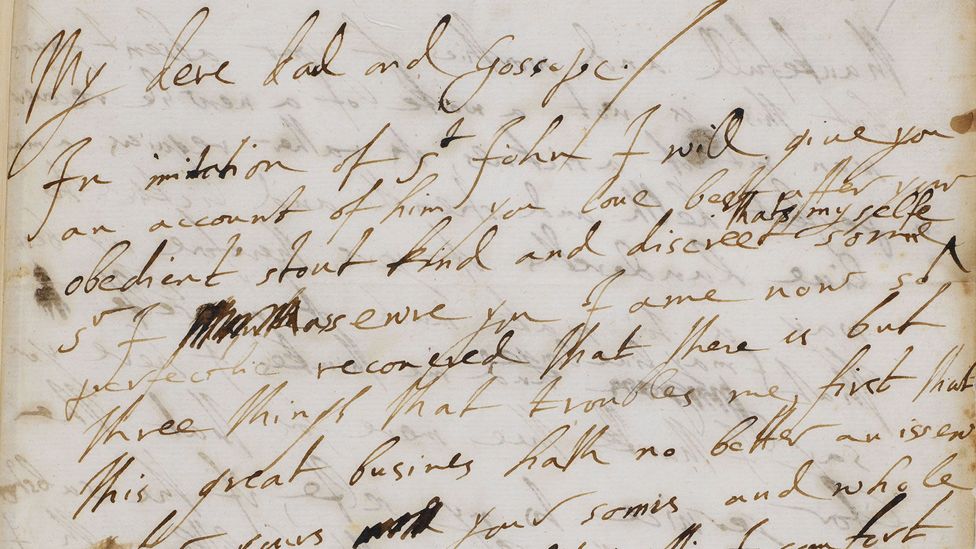 My dere dad and Gossope.
In imitation of St John I will give you
an account of him you love best after your
thats my selfe
obedient stout kind and discreet sonne
Sr I assenre you I ame now so
perfectlie recovered that there is but
three things that troubles me, first that
this great busines hath no better an issew
yours your sonns and whole
comfort